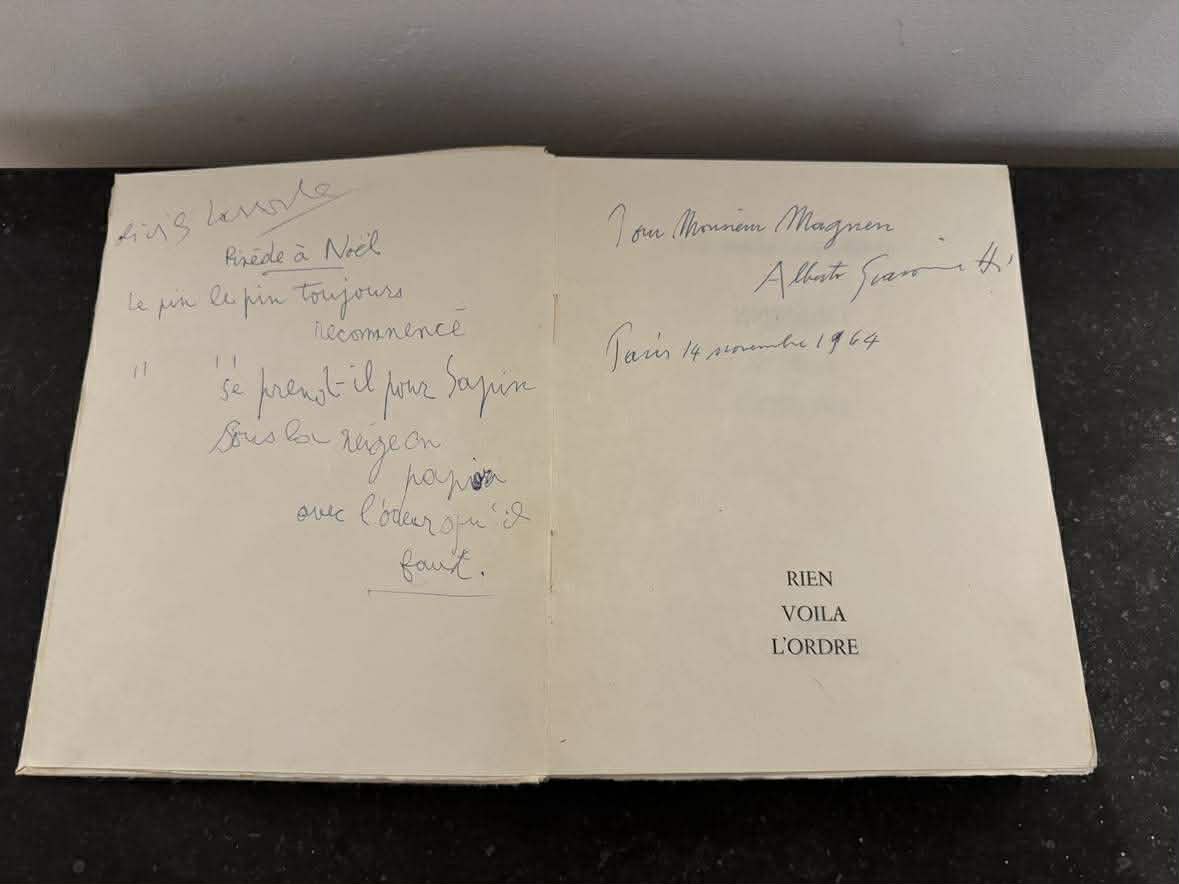 Olivier Larronde
Pinède à Noël
Le pin le pin toujours
recommencé
" " se prend-il pour Sapin
Sous la neige en
papier
avec l'odeur qu'il
faut.
Pour Monsieur Magnen
Alberto Giacometti
Paris 14 novembre 1964
RIEN
VOILA
L'ORDRE